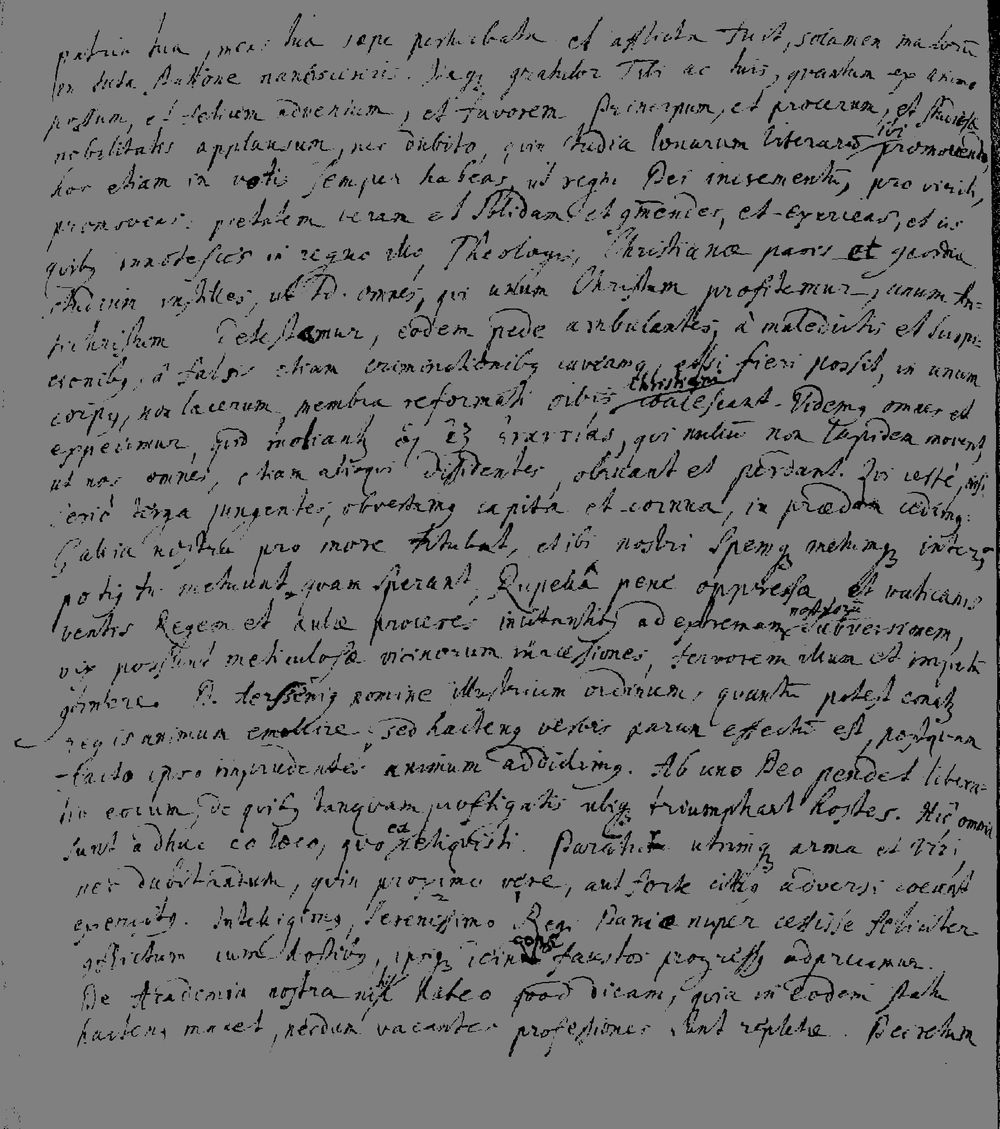 patria tua, mens tua sæpe perturbata et afflicta fuit, solamen
in ista statione nanciscimini. gratulor Tibi ac tuis, quantum ex animo
possum, et felicem adventum, et favorem Principum, et procerum, et
nobilitatis applausum, nec dubito, quin studia bonarum literarũ ibi promovendo,
hoc etiam in votis semper habeas, ut regni Dei incrementũ, pro virili,
promoveas: pietatem veram et solidam et cõmendes, et exerceas, et iis
quibq innotesces in regno illo, Theologis, Christianæ pacis et
studium instilles, ut id. omnes, qui unum Christum profitemur, unum An-
tichristum detestamur, eodem pede ambulantes, à maledictis et suspi-
cionibq, à falsis etiam criminationibq caveamq, etsi fieri possit, in unum
corpq, non lacerum, membra reformati orbis Christiani coalescant. Videmq omnes et
experimur, quid moliantr οἱ ἐξ ἐναντίας, qui nullũ non lapidem movent,
ut nos omnes, etiam alioqui dissidentes, obruant et perdant. Qui certé, nisi
serió terga jungentes, obvertamq capita et cornua, in prædam cedimq.
Gallia nostra pro more titubat, et ibi nostri spemq metumq inter,
potiq tn metuunt quam sperant, Rupella pene oppressa, et vaticanis
ventis Regem et aulæ proceres incitantibq ad extremam nostrorũ subversionem,
vix possunt meticulosæ vicinorum intercessiones, fervorem illum et impetũ
D. Aersseniq nomine illustrium ordinum, quantũ potest
regis animum emollire sed hactenq verbis parum effectũ est, postquam
facto ipso imprudentes animum addidimq. Ab uno Deo pendet libera-
tio eorum, de quibq tanquam profligatis ubiq triumphant hostes. Hîc omnia
sunt adhuc eo loco, quo ea reliquisti. Parantur utrimq arma et viri,
nec dubitandum, quin proximo vere, aut forte citiq adversi coeant
exercitq. Intelligimq, Serenissimo Regi Daniæ nuper cessisse feliciter
conflictum cum hostibq, ipsiq faustos progressq adprecamur.
De Academia nostra nihil habeo quod dicam, quia in eodem statu
hactenq manet, necdum vacantes professiones sunt repletæ. Decretum